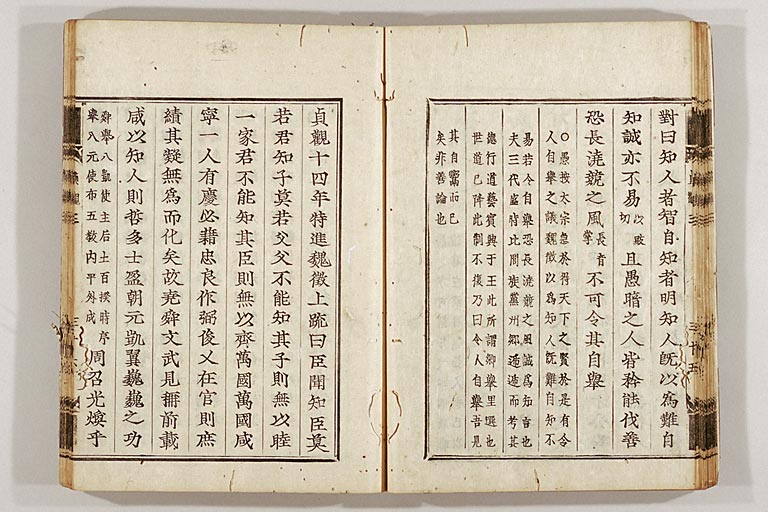 對曰知人者智自知者明知人既以為難自
知誠亦不易以豉切且愚暗之人皆矜能伐善
恐長澆競之風長音掌不可令其自舉
○愚按太宗急於得天下之賢於是有令
人自舉之議魏徵以為知人既難自知不
易若令自舉恐長澆競之風誠為知言也
夫三代盛時比閭族黨州鄉遞遞而考其
德行道藝賓興于王此所謂鄉舉里選也
世道已降此制不復乃曰令人自舉吾見
其自鬻而已
矣非善論也
貞觀十四年特進魏徵上疏曰臣聞知臣莫
若君知子莫若父父不能知其子則無以睦
一家君不能知其臣則無以齊萬國萬國咸
寧一人有慶必藉忠良作弼俊乂在官則庶
績其凝無為而化矣故堯舜文武見稱前載
咸以知人則哲多士盈朝元凱翼巍巍之功
舜舉八凱使主后土百揆時序
舉八元使布五教內平外成
周召光煥乎